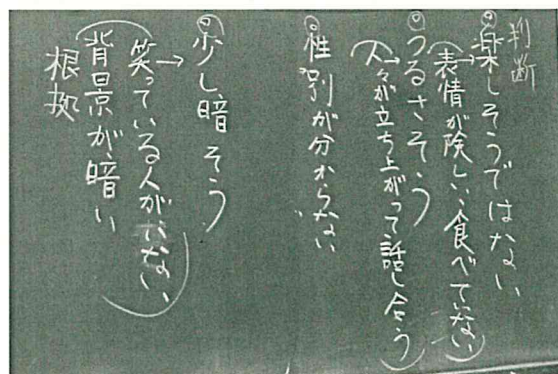 判断
◎楽しそうではない
→(表情が険しい、食べていない)
◎うるさそう
→(人々が立ち上がって話し合う)
◎性別が分からない
◎少し、暗そう
→(笑っている人がいない、
背景が、暗い)
根拠